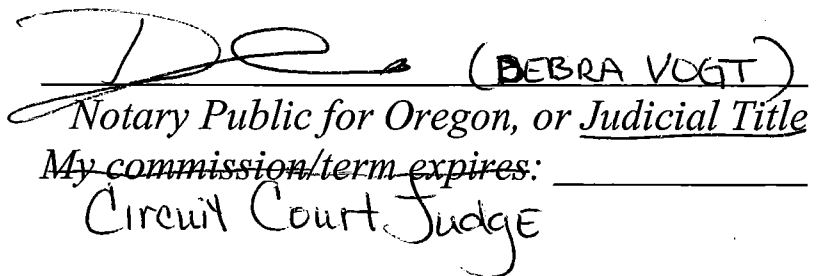 (DEBRA VOGT)
Notary Public for Oregon, or Judicial Title
My commission/term expires: ____________
Circuit Court Judge